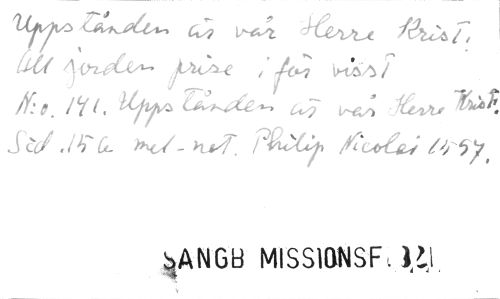 Uppstånden är vår Herre Krist.
All jorden prise i för visst
N:o. 141. Uppstånden är vår Herre Krist.
Sid. 156 mel-not. Philip Nicolai 1597.
SANGB MISSIONSF.